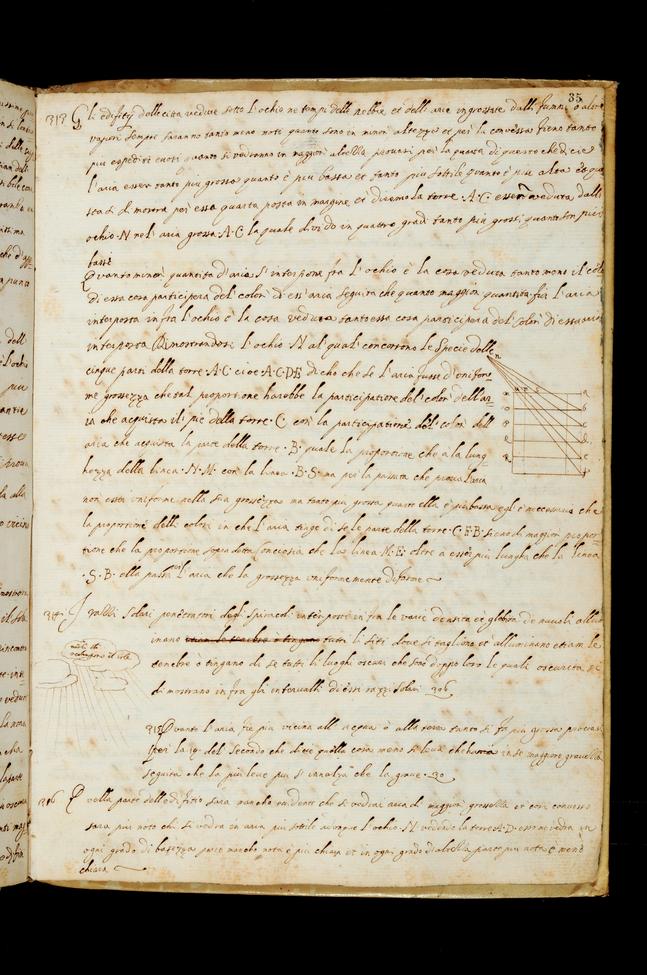 35
313 Gli edifitij della citta veduti sotto l'ochio ne tempi delle nebbie et delle arie ingrossate dalli fummi o altri
vapori sempre saranno tanto meno noti quanto sono in minori altezze et per la conversa fieno tanto
piu espediti quanto si vedranno in maggiori altezze provasi per la quarta di questo che dice
l'aria esser tanto piu grossa quanto è piu bassa et tanto piu sottile quanto è piu alta et que
sta si dimostra per essa quarta posta in margine et diremo la torre .A.C. esser veduta dall
ochio .N. nel'aria grossa .A.C. la quale divido in quattro gradi tanto piu grossi quanto son piu
bassi
Quanto minor quantita d'aria s'interpone fra l'ochio è la cosa veduta tanto meno il col
di essa cosa participera del color di ess'aria seguita che quanto maggior quantita fia l'aria
interposta infra l'ochio è la cosa veduta tanto essa cosa participera del color di essa aria
interposta dimostrandosi l'ochio .N. al qual concorrono le spetie delle
cinque parti della torre .A.C. cioe .A.C.D.E. dicho che se l'aria fusse d'unifor
me grossezza che tal proportione harebbe la participatione del color dell'ar
ia che acquista il piè della torre .C. con la participatione del color dell
aria che acquista la parte della torre .B. quale la proportione che à la lung
hezza della linea .N.M. con la linea .B.S. ma per la passata che prova l'aria
non esser uniforme nella sua grossezza ma tanto piu grossa quanto ella è piu bassa egl'è necessario che
la proportione delli colori in che l'aria tinge di se le parte della torre .C. E .B. sieno di maggior propor
tione che la proportione sopra detta conciosia che la linea .M.E. oltre a esser piu lungha che la linea
.S.B. ella passa l'aria che la grossezza uniformemente diforme
314 I razzi solari penetratori degli spiracoli interposti infra le varie densita et globosi de nuvoli allu
minano tutti li siti dove si tagliono et alluminano etiam le
tenebre o tingano di se tutti li luoghi oscuri che son doppo loro le quali oscurita si
dimostrano infra gli intervalli di essi razzi solari
nuvoli che
ochupano il sole
315 Quante l'aria fia piu vicina all'acqua o alla terra tanto si fa piu grossa provasi
per la 19 del secondo che dice quella cosa meno si leva che hara in se maggiore gravezza
seguita che la piu leve piu s'innalza che la grave
316 Quella parte dello edifitio sara mancho evidente che si vedra in aria di maggior grossezza et cosi converso
sara piu noto chi si vedra in aria piu sottile adonque l'ochio .N. vedendo la torre .A.D. esso ne vedra in
ogni grado di bassezza parte mancho nota e piu chiara et in ogni grado di altezza parte piu nota e meno
chiara